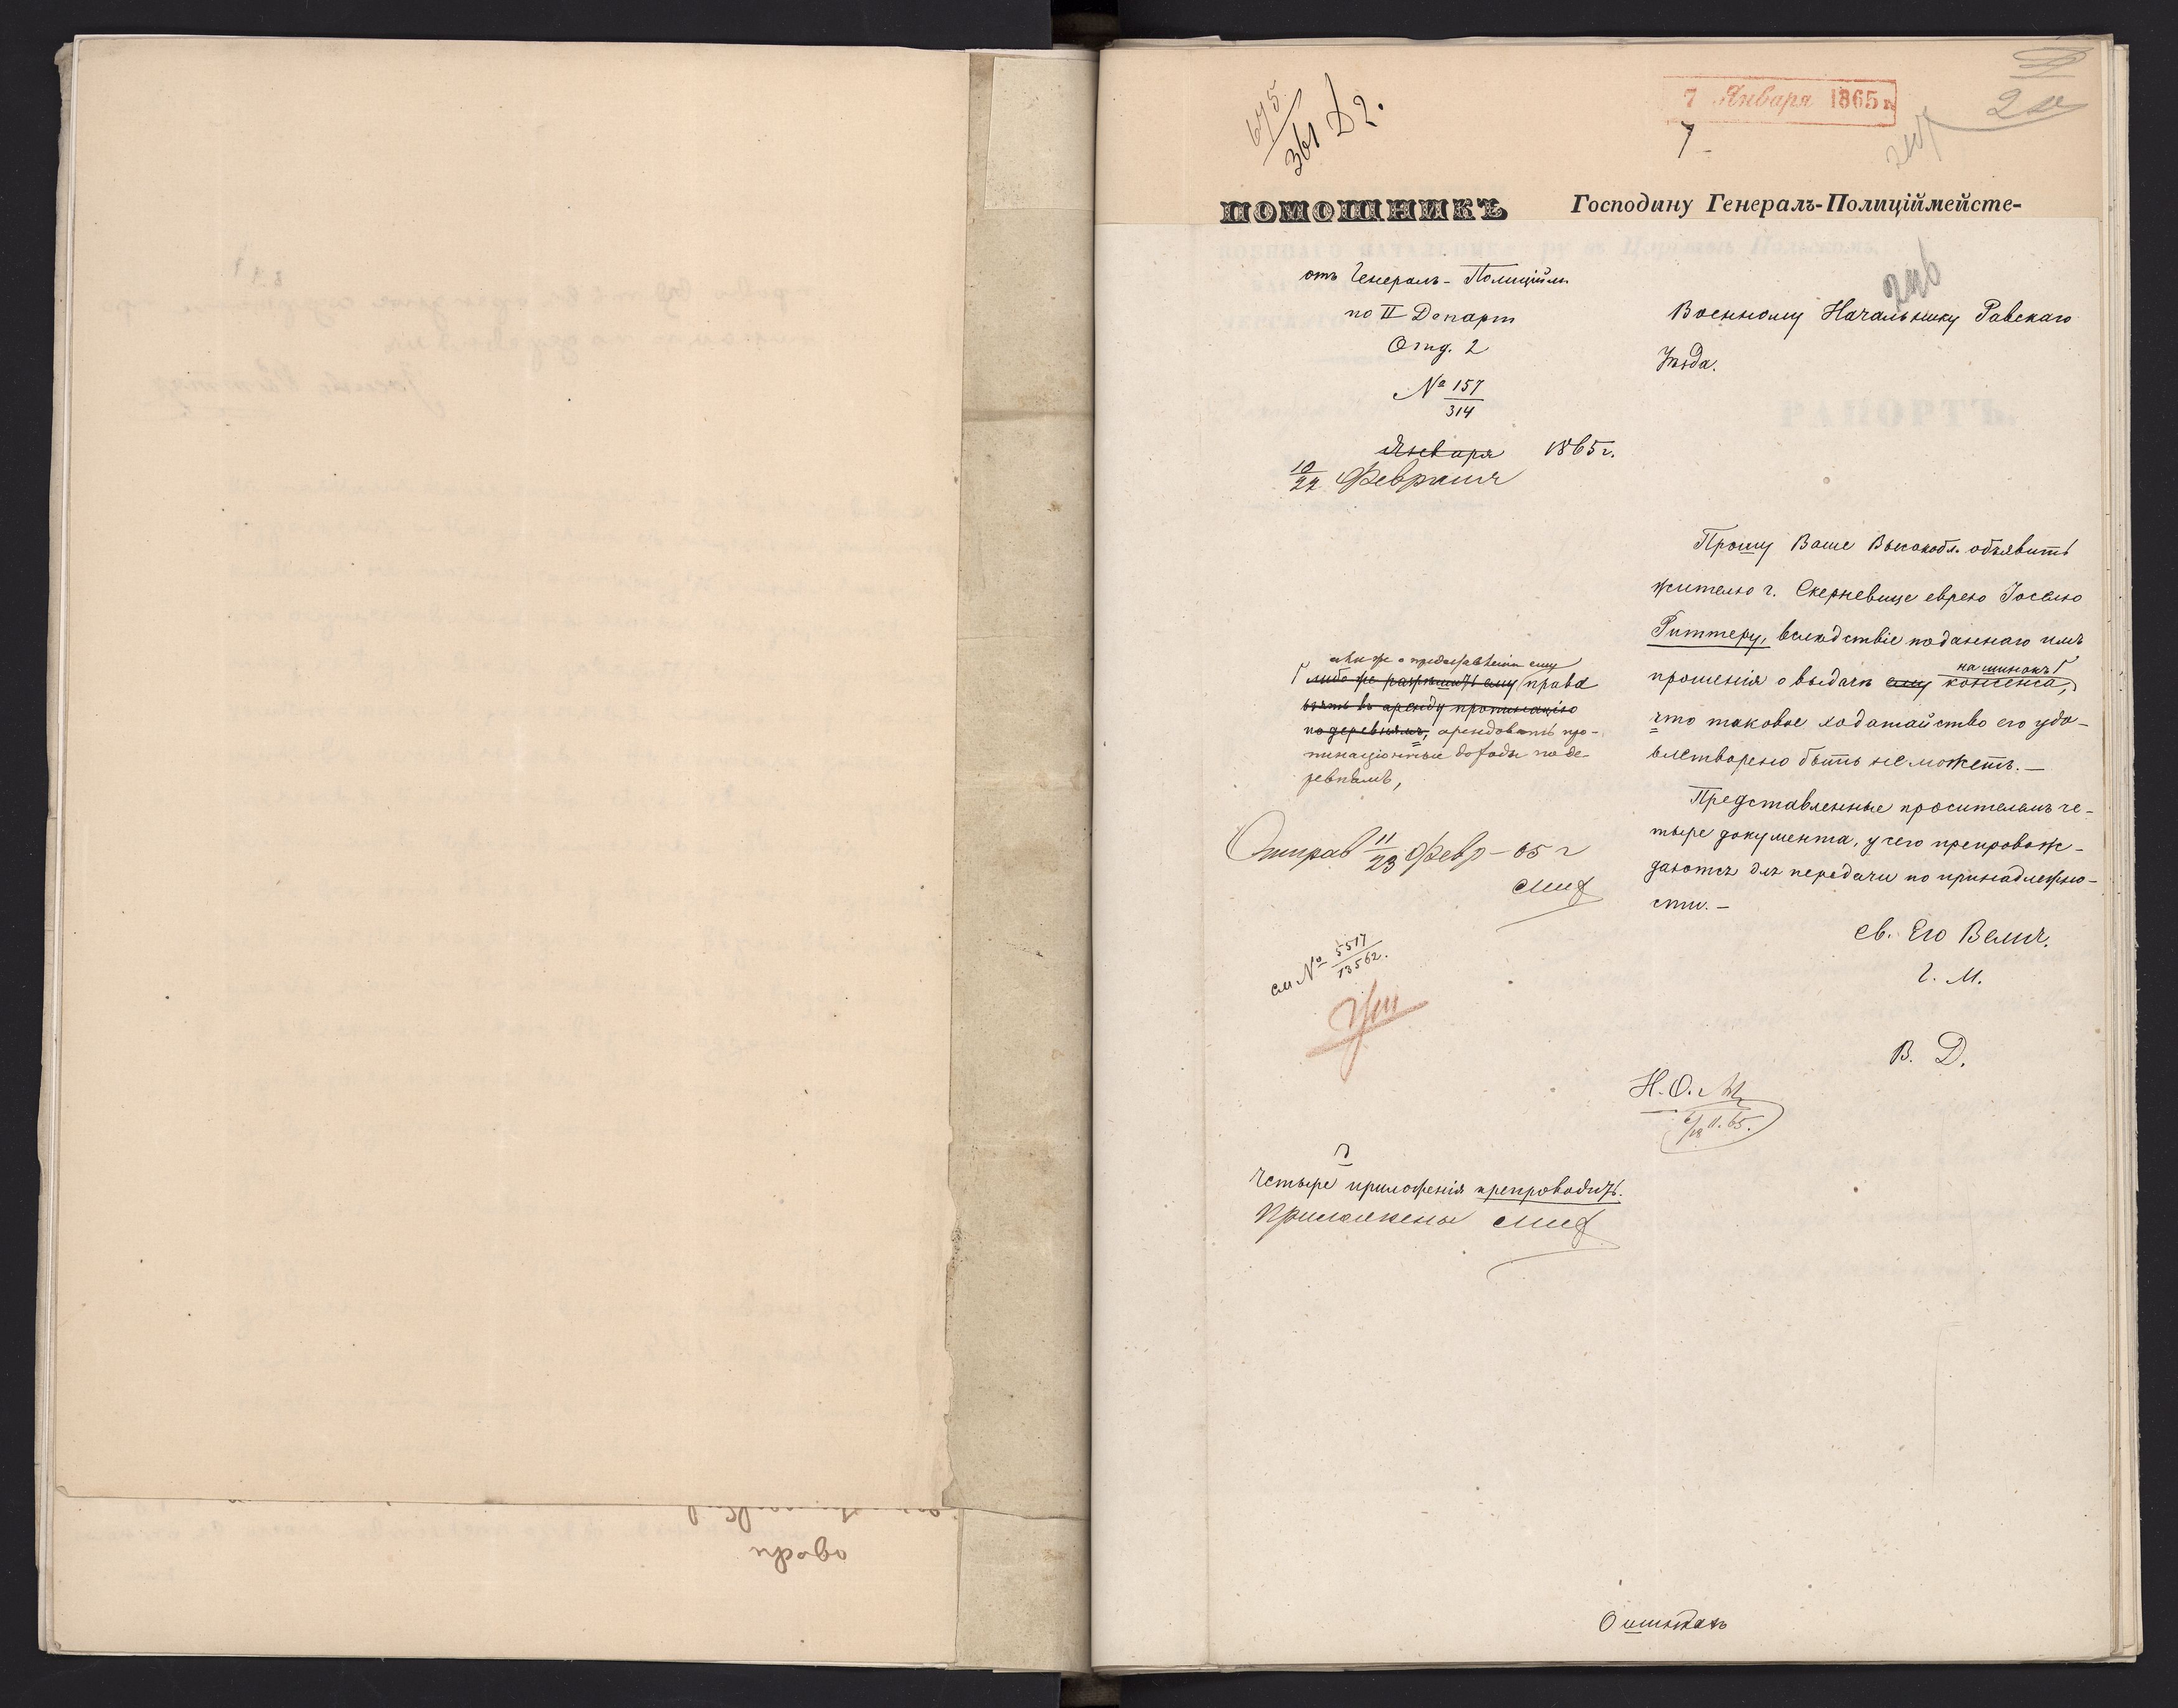 675/361 Д2.
7 Января 1865 г.
7
ПОМОЩНИКЪ
Господину Генералъ-Полиціймейсте-
246
отъ Генералъ-Полиційм
по II Департ
Отд. 2
№ 157/314
Января 1865 г.
10/22 Февраля
Военному Начальнику Равскаго
Уѣзда.
РАПОРТЪ.
Прошу Ваше Высокобл. объявить
жителю г. Скерневице еврею Іоселю
Риттеру, вслѣдствіе поданнаго имъ
прошенія о выдачѣ ему консенса,
на шинокъ
что таковое ходатайство его удо-
влетворено быть не можетъ.—
Представленные просителемъ че-
тыре документа, у сего препровож-
даются для передачи по принадлежно-
сти.—
Св. Его Велич.
Г. М.
В. Д.
Н. О.
6/18 II. 65.
а также о предоставленіи ему
либо же разрѣшить ему права
взять въ аренду пропинацію
по деревнямъ, арендовать про-
пинаціонные доходы по де-
ревнямъ,
Отправ 11/23 Февр - 65 г
см № 5517/13562.
Четыре приложенія препроводить.
Приложены
О шинкахъ